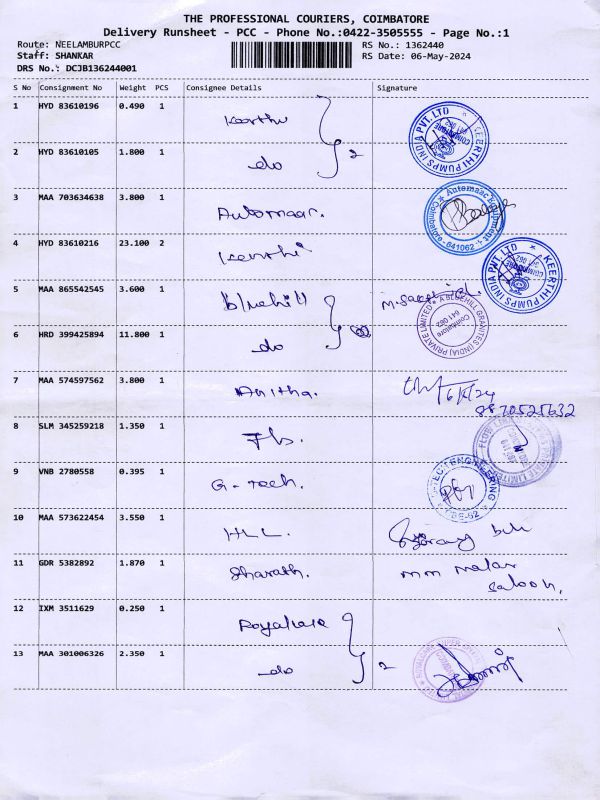 THE PROFESSIONAL COURIERS, COIMBATORE
Delivery Runsheet - PCC - Phone No.:0422-3505555 - Page No.:1
Route: NEELAMBURPCC
RS No.: 1362440
Staff: SHANKAR
RS Date: 06-May-2024
DRS No.: DCJB136244001
S No Consignment No Weight PCS Consignee Details Signature
1 HYD 83610196 0.490 1
KEERTHI PUMPS INDIA PVT. LTD
2 HYD 83610105 1.800 1 do 2
3 MAA 703634638 3.800 1
Automaac Equipment Coimbatore - 641062
4 HYD 83610216 23.100 2
KEERTHI PUMPS INDIA PVT. LTD
5 MAA 865542545 3.600 1 Bluehill
BLUEHILL GRANITES (INDIA) PRIVATE LIMITED Coimbatore 641 062
6 HRD 399425894 11.800 1 do
7 MAA 574597562 3.800 1 Anitha.
8870525632
8 SLM 345259218 1.350 1
9 VNB 2780558 0.395 1 G-Tech.
10 MAA 573622454 3.550 1 HLL.
11 GDR 5382892 1.870 1 Sharath. mm malar
saloon.
12 IXM 3511629 0.250 1
13 MAA 301006326 2.350 1 do 2